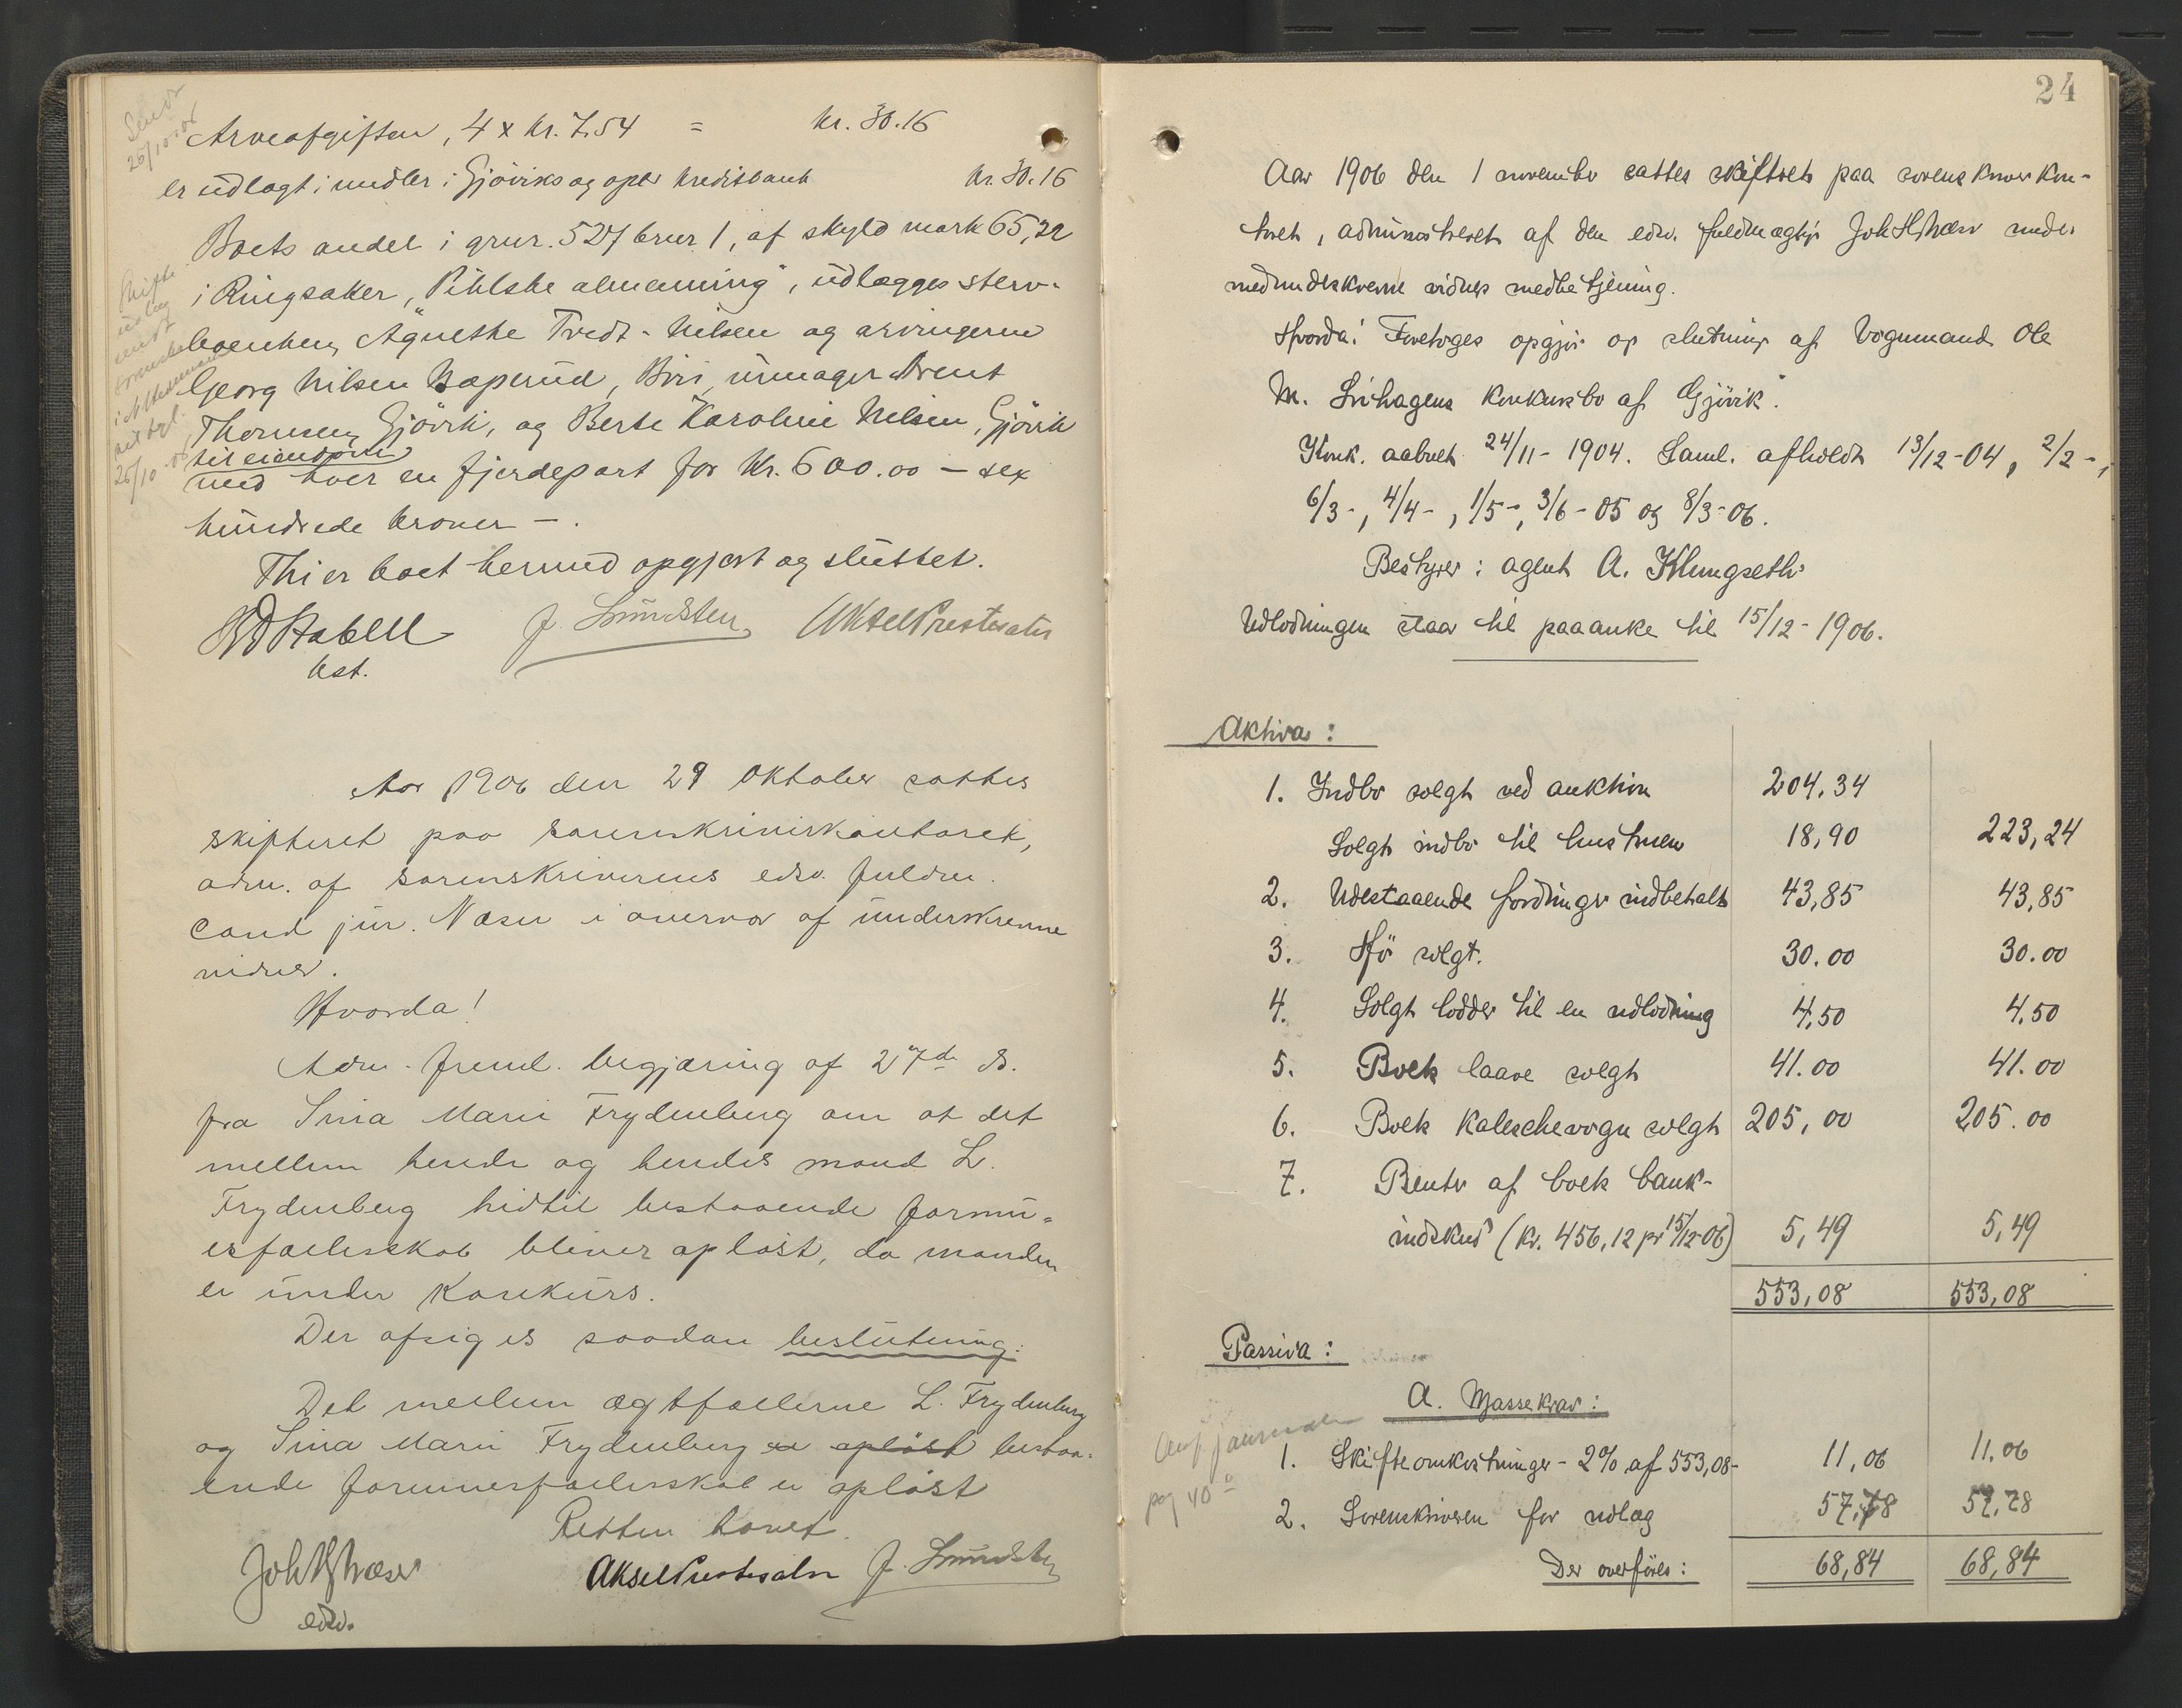 Sendt
26/10 06
Arveafgiften, 4 x kr. 7.54 = kr. 30.16
er udlagt i midler i Gjøviks og opl. kreditbank kr. 30.16
Boets andel i grnr. 527 brnr 1, af skyld mark 65,22
i Ringsaker, "Pihlske almenning", udlægges sterv-
boenken, Agnethe Tvedt-Nilsen og arvingerne
Georg Nilsen Bæperud, Biri, urmager Arent
Thomsen, Gjøvik, og Berte Karoline Nilsen, Gjøvik
til eiendom
med hver en fjerdepart for kr. 600.00 – sex
hundrede kroner –.
Thi er boet hermed opgjort og sluttet.
Skifte
udlæg
sendt
26/10 06
J. Sundsten Aksel Prestesater
bst.
Aar 1906 den 29 oktober sattes
skifteret paa sorenskriverkontoret,
adm. af sorenskriverens edsv. fuldm.
cand jur. Næser i overvær af underskrevne
vidner.
Hvorda!
Adm. freml. begjæring af 27de ds.
fra Sina Marie Frydenberg om at det
mellem hende og hendes mand L.
Frydenberg hidtil bestaaende formu-
esfællesskab bliver opløst, da manden
er under konkurs.
Der afsiges saadan beslutning:
Det mellem ægtefællerne L. Frydenberg
og Sina Marie Frydenberg er opløst bestaa-
ende formuesfællesskab er opløst
Retten hævet.
Joh H Næser Aksel Prestesater J. Sundsten
edsv.
24
Aar 1906 den 1 november sattes skifteret paa sorenskriverkon-
toret, administreret af den edsv. fuldmægtig Joh H Næser under
nedenudskrevne vidners medbetjening.
Hvorda! Foretoges opgjør og slutning af "Vognmand Ole
M. Sivhagens konkursbo af Gjøvik".
Konk. aabnet 24/11-1904. Saml. afholdt 13/12-04, 2/2-,
6/3-, 4/4-, 1/5-, 3/6-05 og 8/3-06.
Bestyrer: agent A. Klungseth
Udlodningen staar til paaanke til 15/12-1906.
Aktiva:
1. Indbo solgt ved auktion 204,34
Solgt indbo til hustruen 18,90 223,24
2. Udestaaende fordringer indbetalt 43,85 43,85
3. Hø solgt. 30.00 30.00
4. Solgt lodder til en udlodning 4,50 4,50
5. Boets laave solgt 41.00 41.00
6. Boets kaleschevogn solgt 205,00 205.00
7. Renter af boets bank-
indskud (kr. 456,12 pr 15/12-06) 5,49 5,49
553,08 553,08
Passiva:
A. Massekrav:
Anf. journalen
pag 40
1. Skifteomkostninger - 2% af 553,08- 11,06 11,06
2. Sorenskriveren for udlæg 57,78 57,78
Der overføres: 68,84 68,84